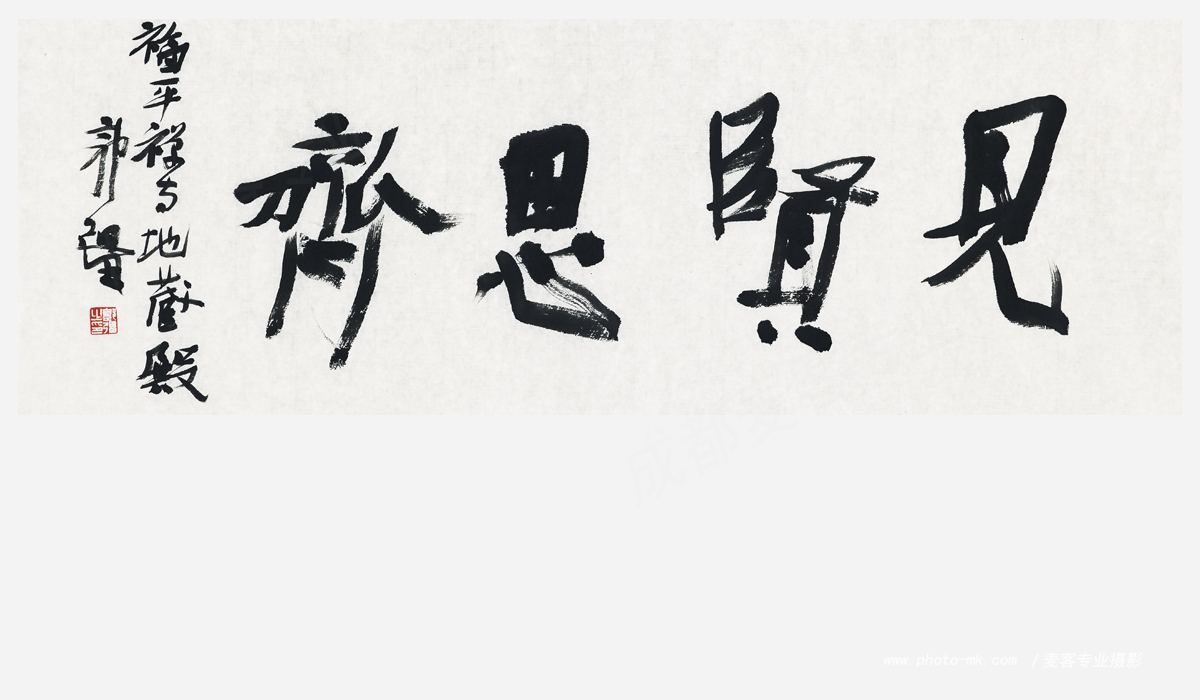 見賢思齊
福平禪寺地藏殿
郭強
www.photo-mk.com /麦客专业摄影